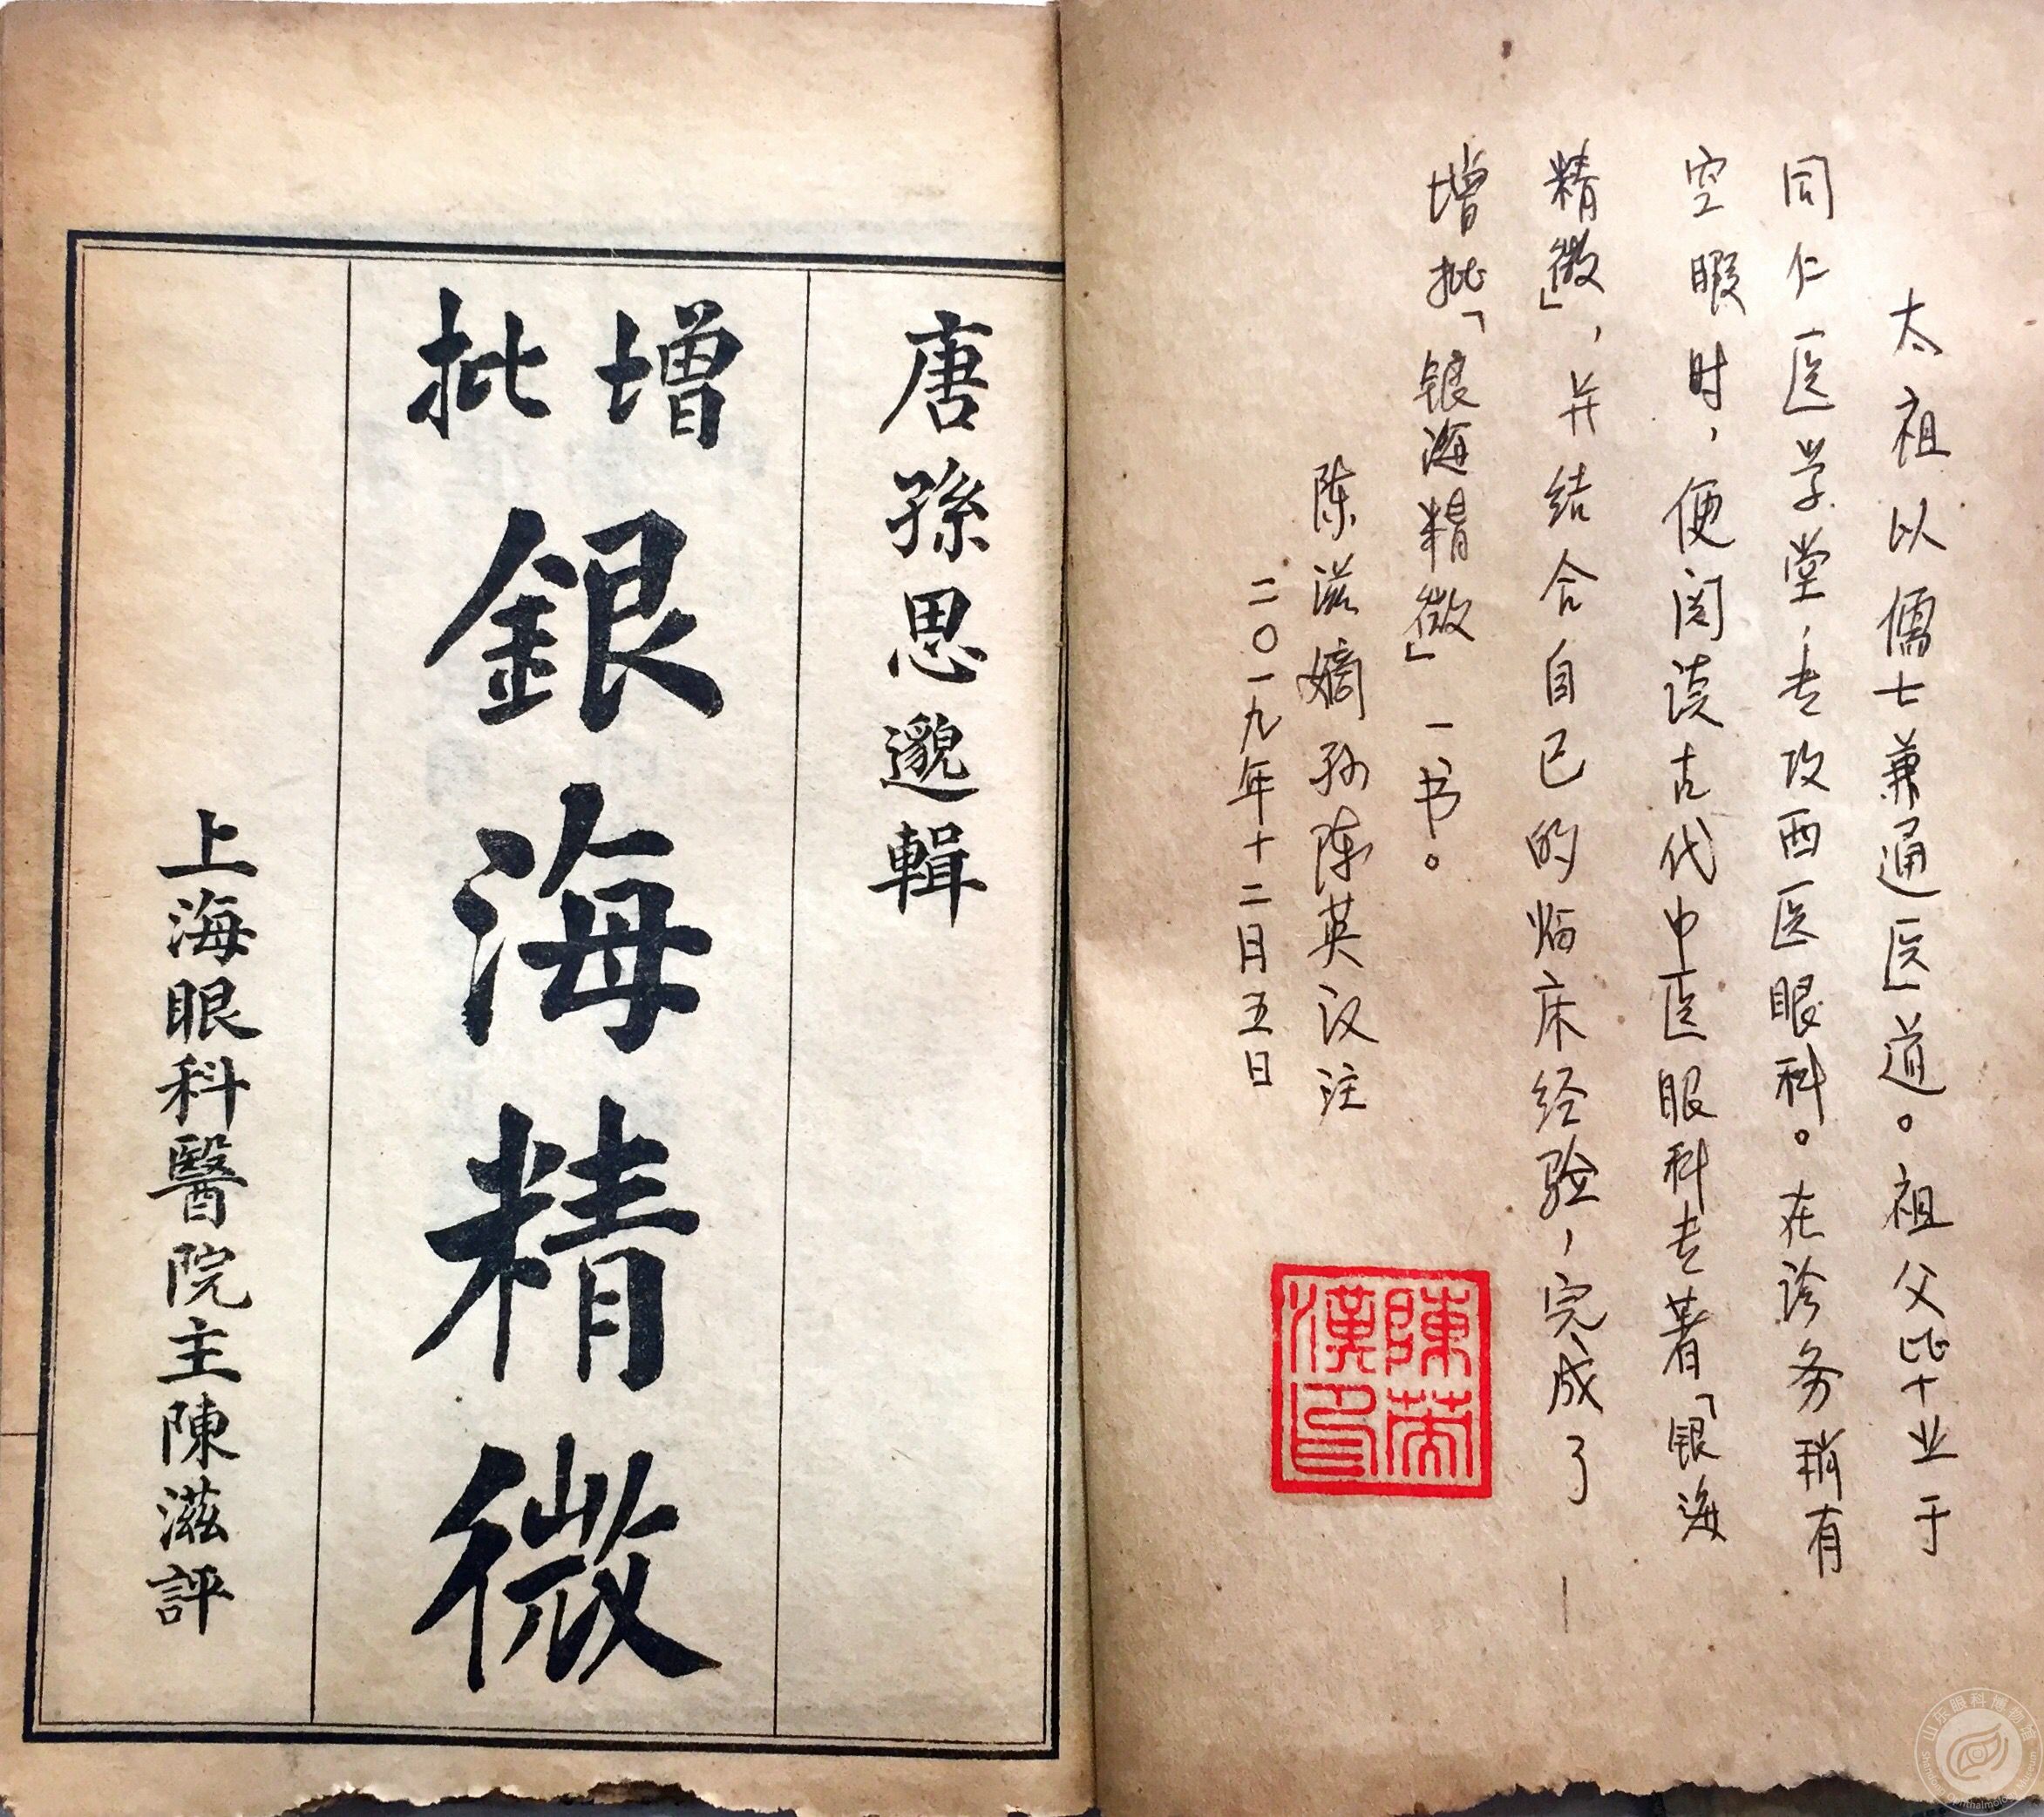 太祖以儒士兼通医道。祖父毕业于
同仁医学堂，专攻西医眼科。在诊务稍有
空暇时，便阅读古代中医眼科专著「银海
精微」，并结合自己的临床经验，完成了
增批「银海精微」一书。
陈滋嫡孙陈英汉注
二〇一九年十二月五日
陳英
漢印
唐孫思邈輯
增批
銀海精微
上海眼科醫院主陳滋評
山东眼科博物馆